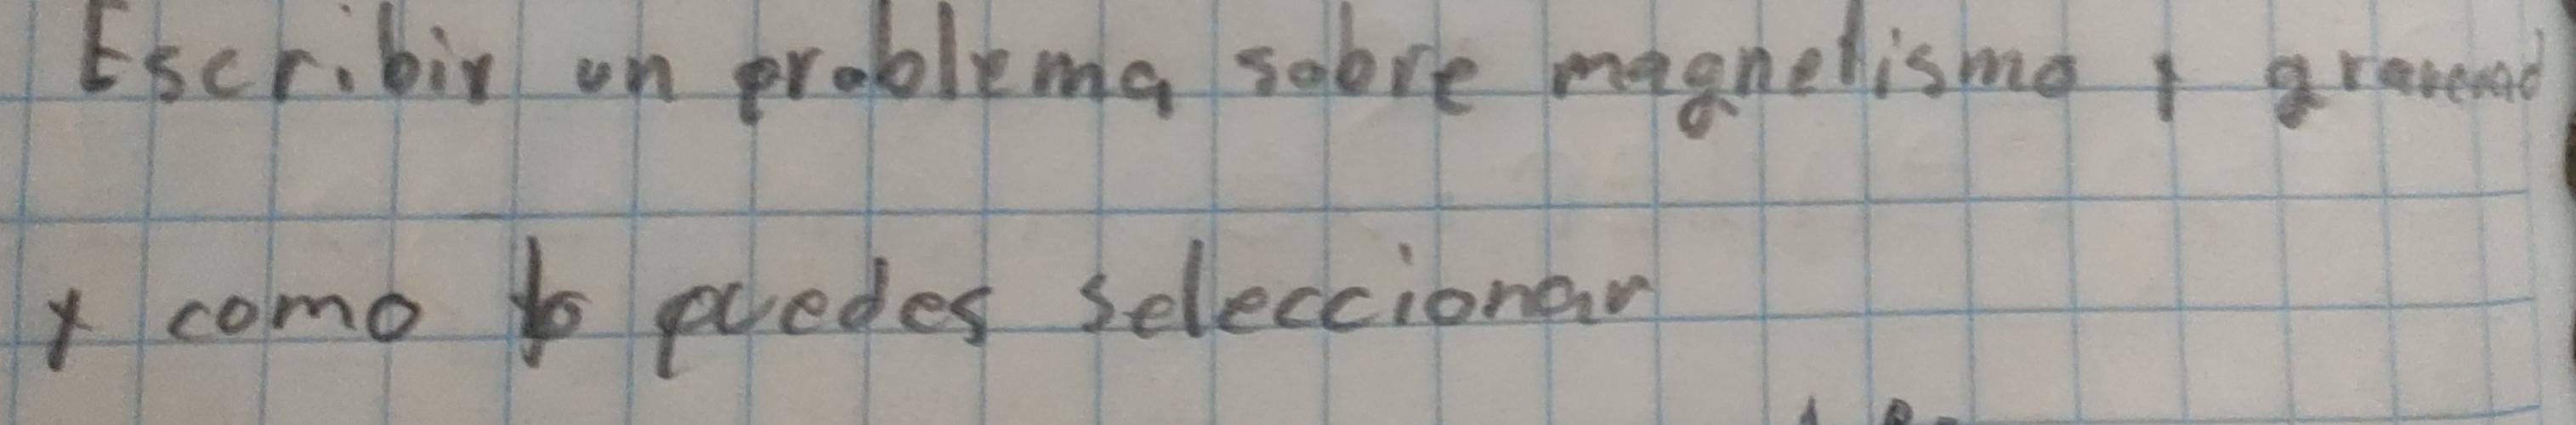 Escribir un problema sobre magnetismo y gravedad
y como lo puedes seleccionar